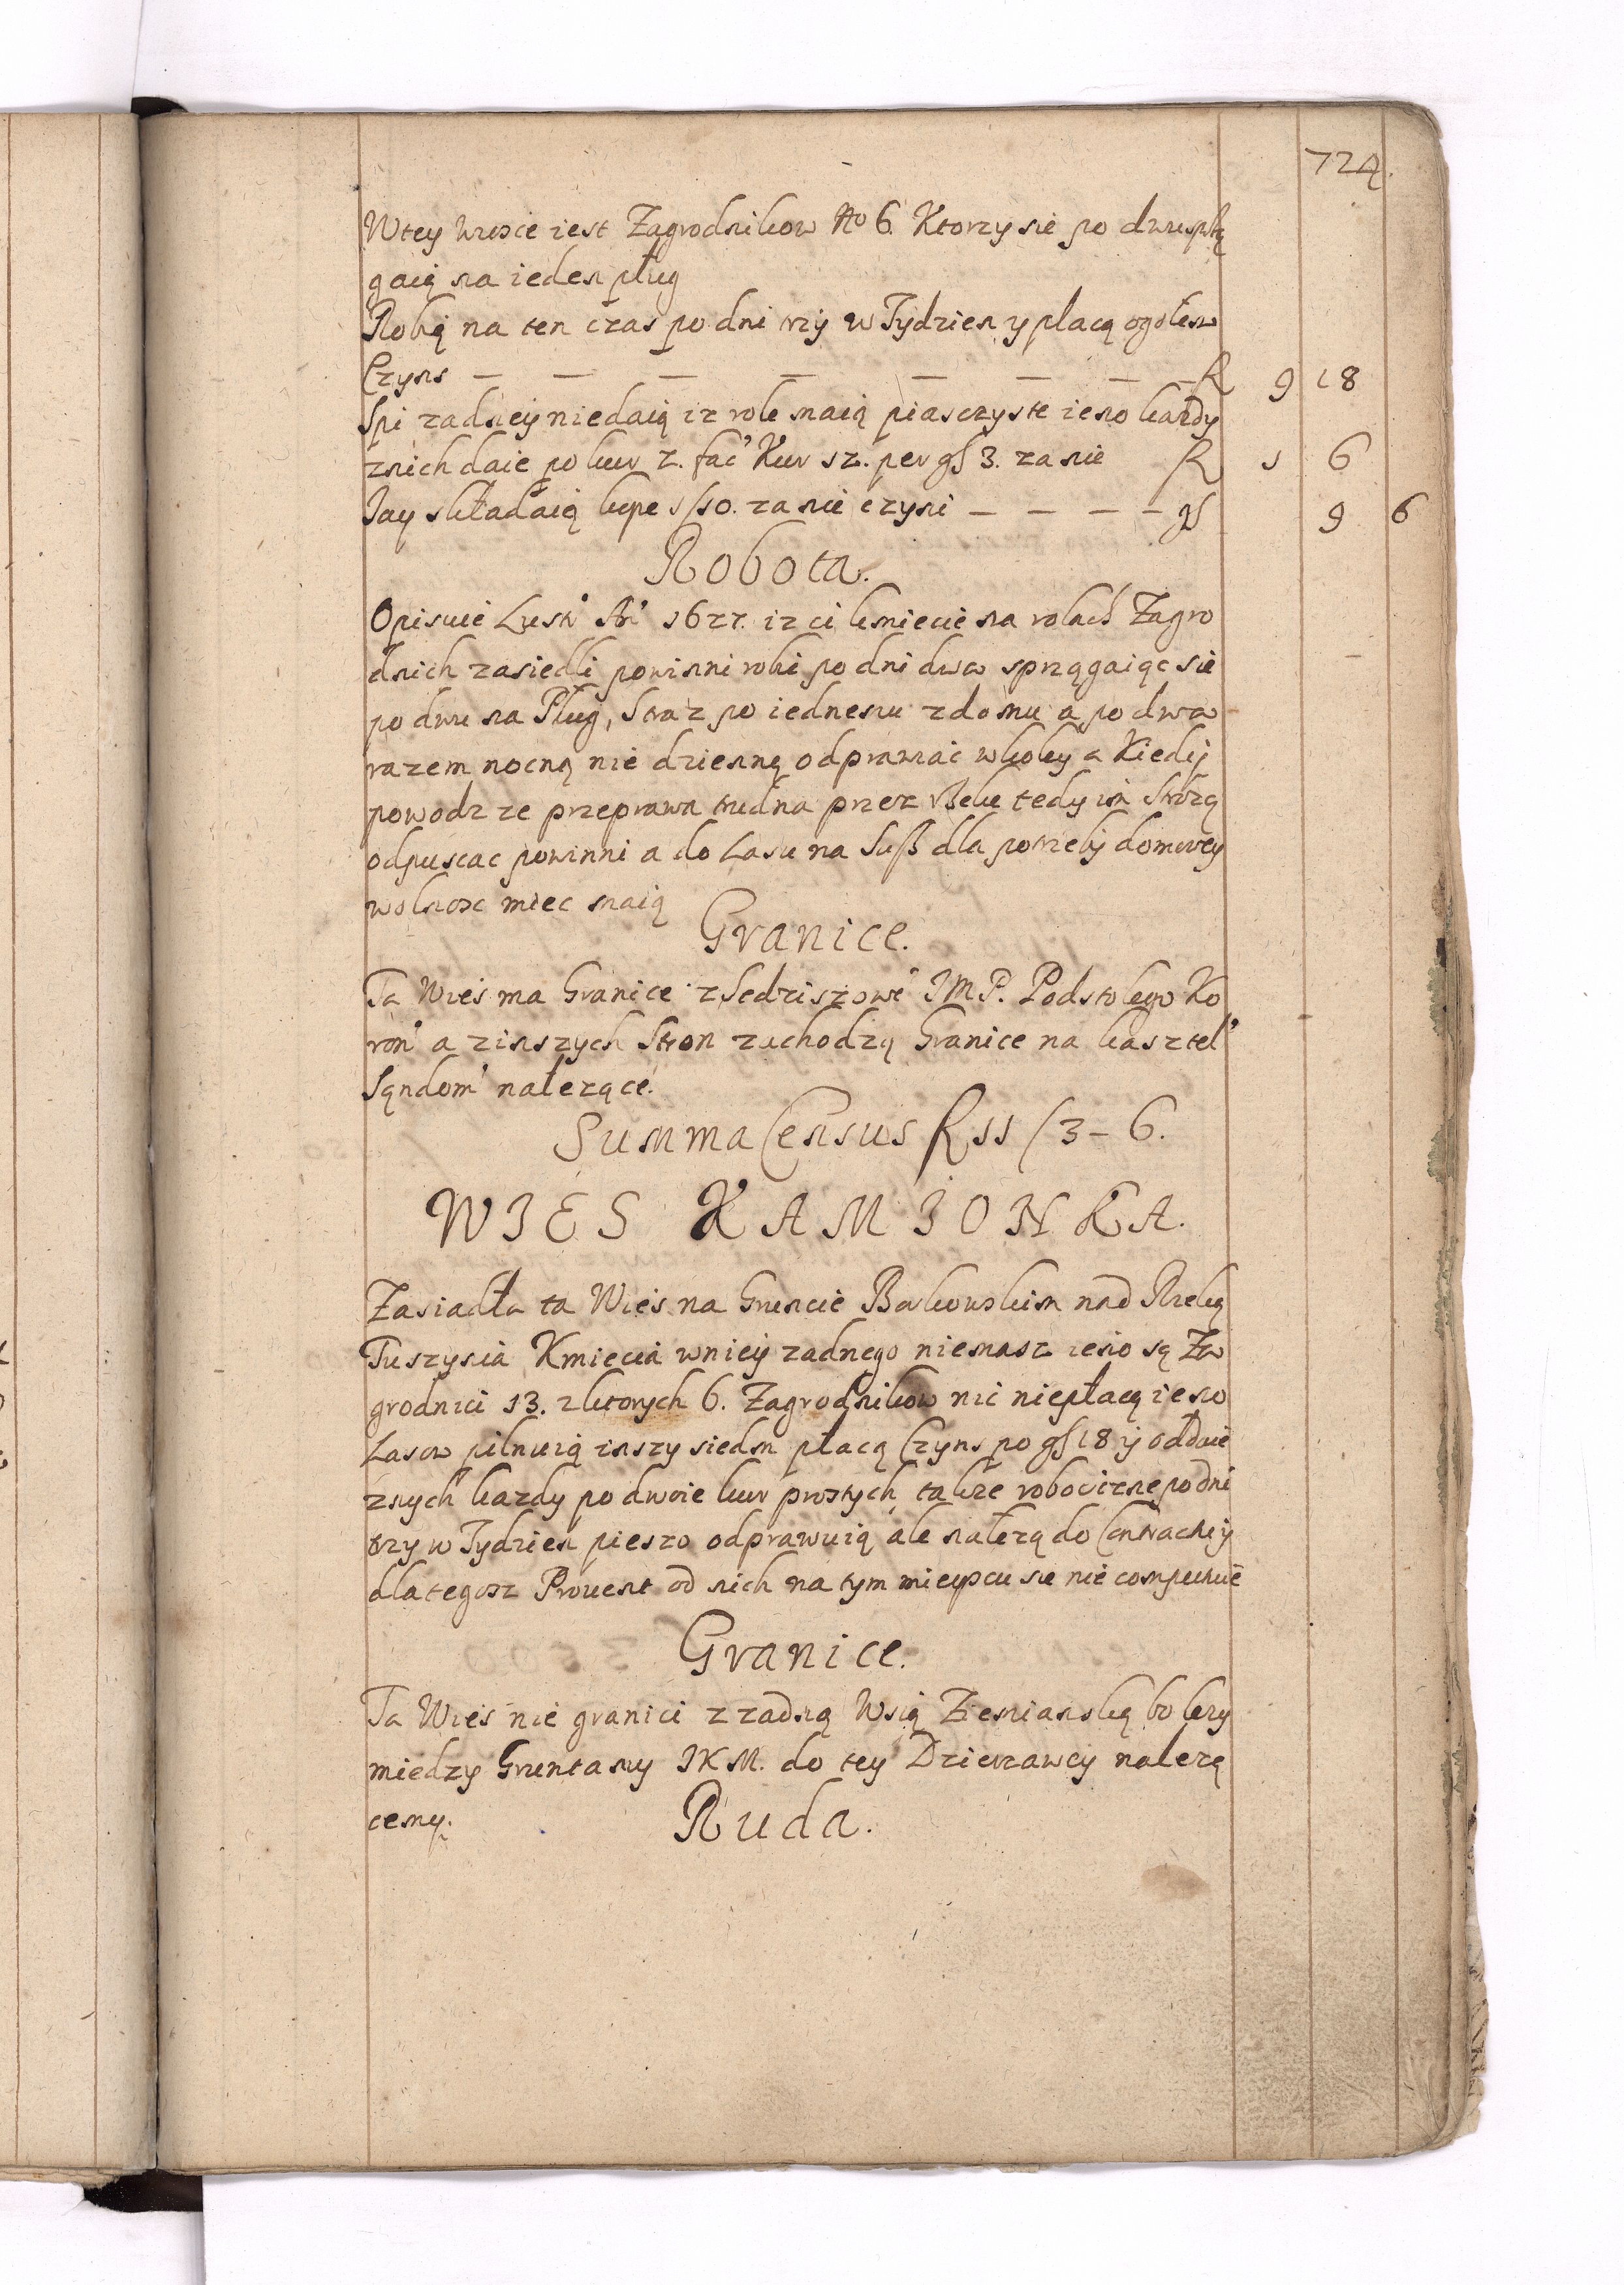 724.
Wtey wsoie iest Zagrodnikow No 6. Ktorzy sie po dwu sprzę
gaią na ieden pług
Robią na ten czas po dni trzy w Tydzien y płacą ogołem
Czyns — — — — — — — fl 9 18
Spi zadney niedaią iz role maią piasczyste ieno kazdy
znich daie po kur 2. fac' Kur 12. per gs 3. za nie fl 1 6
Jay składaią kupe 1/10. za nie czyni — — — — gs 9 6
Robota.
Opisuie Lustr' An' 1627. iz ci kmiecie na rolach Zagro
dnich zasiedli powinni robi po dni dwa sprzągaiąc sie
po dwu na Pług, Straz po iednemu zdomu a po dwa
razem nocną nie dzienną odprawiac wkoley a Kiedy
powodz ze przeprawa trudna przez Rzeke tedy im Strozą
odpuscac powinni a do Lasu na Susz dla potrzeby domowey
wolnosc miec maią
Granice.
Ta Wieś ma Granice z Sedziszowe' JMP. Podstolego Ko
ron' a zinszych Stron zachodzą Granice na kasztel'
Sąndom' nalezące.
Summa Census fl 11/3-6.
WIES KAMIONKA.
Zasiadła ta Wieś na Gruncie Borkowskim nad Rzeką
Tuszyma Kmiecia wniey zadnego niemasz ieno są Za
grodnici 13. zktorych 6. Zagrodnikow nic niepłacą ieno
Lasow pilnuią inszy siedm płacą Czyns po gs 18 y oddaie
znych kazdy po dwoie kur prostych takze robocizne po dni
trzy w Tydzien pieszo odprawuią ale nalezą do Contrachty
dla tegosz Prouent od nich na tym mieyscu sie nie computuie
Granice.
Ta Wieś nie granici z zadną Wsią Ziemianską bo lezy
miedzy Gruntamy JKM. do tey Dzierzawey nalezą
cemy.
Ruda.